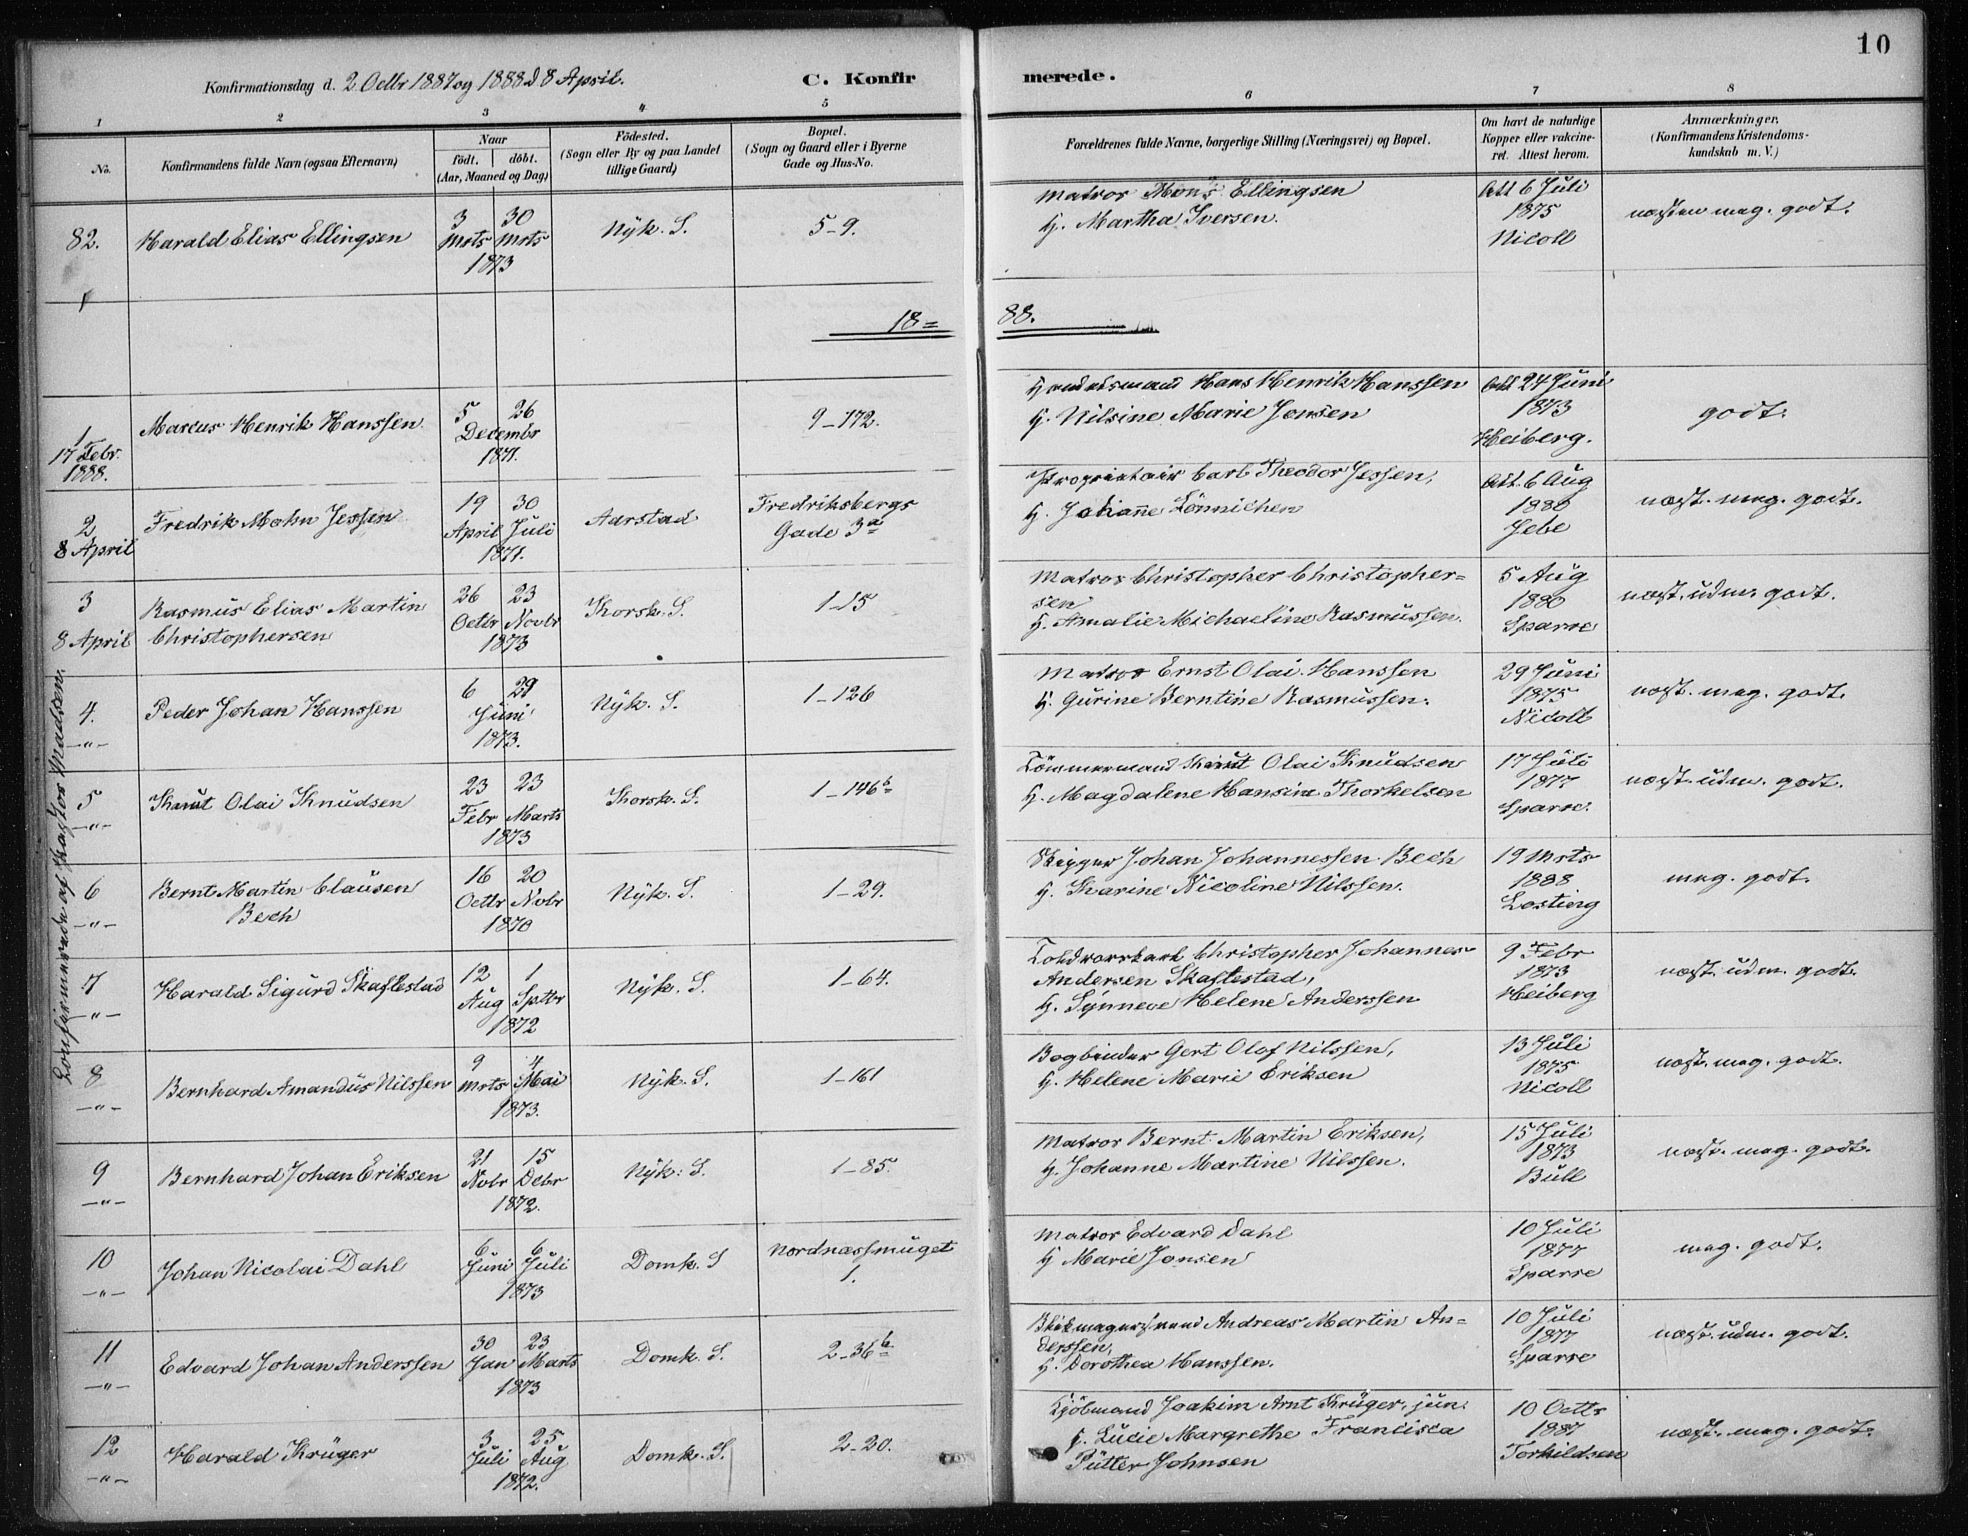 10
Konfirmationsdag d. 2 Octbr 1887 og 1888 d 8 April.
C. Konfirmerede.
1 2 3 4 5 6 7 8
No.
Konfirmandens fulde Navn (ogsaa Efternavn)
Naar
født. | døbt.
(Aar, Maaned og Dag)
Fødested.
(Sogn eller By og paa Landet
tillige Gaard)
Bopæl.
(Sogn og Gaard eller i Byerne
Gade og Hus-No.
Forældrenes fulde Navne, borgerlige Stilling (Næringsvei) og Bopæl.
Om havt de naturlige
Kopper eller vakcine-
ret. Attest herom.
Anmærkninger.
(Konfirmandens Kristendoms-
kundskab m. V.)
82. Harald Elias Ellingsen
3 Mrts 30 Mrts
1873
Nÿk. S.
5-9.
Matros Mons Ellingsen
H. Martha Iversen.
Att 6 Juli
1875
Nicoll
næsten meg. godt.
18=88.
1
17 Febr.
1888.
Marcus Henrik Hanssen
5 26
Decembr
1871.
9-172.
Handelsmand Hans Henrik Hanssen
H. Nilsine Marie Jensen
Att 24 Juni
1873
Heiberg.
godt.
2
8 April
Fredrik Mohn Jessen
19 April 30 Juli
1871.
Aarstad
Fredriksbergs
Gade 3a
Proprietair Carl Theodor Jessen,
H. Johanne Lönnichen
Att. 6 Aug
1880
Jebe
næst. meg. godt.
3
8 April
Rasmus Elias Martin
Christophersen
26 Octbr 23 Novbr
1873
Korsk. S.
1-15
Matros Christopher Christopher=
sen
H. Amalie Michaeline Rasmussen.
5 Aug
1880
Sparre
næst. udm. godt.
4.
-"-
Peder Johan Hanssen
6 29
Juni
1873.
Nÿk. S.
1-126
Matros Ernst Olai Hanssen
H. Gurine Berntine Rasmussen.
29 Juni
1875
Nicoll
næst. meg. godt.
5
-"-
Knut Olai Knudsen
23 Febr 23 Marts
1873
Korsk. S.
1-146b
Tömmermand Knut Olai Knudsen
H. Magdalene Hansine Thorkelsen
17 Juli
1877
Sparre.
næst. udm. godt.
6
-"-
Bernt Martin Clausen
Bech
16 Octbr 20 Nvbr
1870
Nÿk. S.
1-29.
Skipper Johan Johannessen Bech
H. Karine Nicoline Nilssen.
19 Mrts
1888
Losting
meg. godt.
7
-"-
Harald Sigurd Skaftestad
12 Aug 1 Sptbr
1872
Nÿk. S.
1-64.
Toldvorrkarl Christopher Johannes
Andersen Skaftestad,
H. Synneve Helene Anderssen
9 Febr
1873
Heiberg
næst. udm. godt.
8
-"-
Bernhard Amandus Nilssen
9 Mrts 4 Mai
1873.
Nÿk. S.
1-161
Bogbinder Gert Olof Nilssen,
H. Helene Marie Eriksen
13 Juli
1875
Nicoll
næst. meg. godt.
9
-"-
Bernhard Johan Eriksen
21 Nvbr 15 Debr
1872.
Nÿk. S.
1-85.
Matros Bernt Martin Eriksen,
H. Johanne Martine Nilssen.
15 Juli
1873
Bull
næst. meg. godt.
10
-"-
Johan Nicolai Dahl
6 Juni 6 Juli
1873
Domk. S
Nordnæssmuget
1.
Matros Edvard Dahl
H Marie Jonsen
10 Juli
1877
Sparre
meg. godt.
11
-"-
Edvard Johan Anderssen
30 Jan 23 Marts
1873
Domk. S.
2-36b
Blikmagersvend Andreas Martin An=
derssen,
H. Dorothea Hanssen.
10 Juli
1877
Sparre
næst. udm. godt.
12
-"-
Harald Krüger
3 Juli 25 Aug
1872.
Domk. S.
2-20.
Kjöbmand Joakim Arnt Krüger, jun.
H. Lucie Margrethe Francisca
Pütter Johnsen
10 Octbr
1887
Torkildsen
næst. meg. godt.
Konfirmerede af Pastor Madsen.